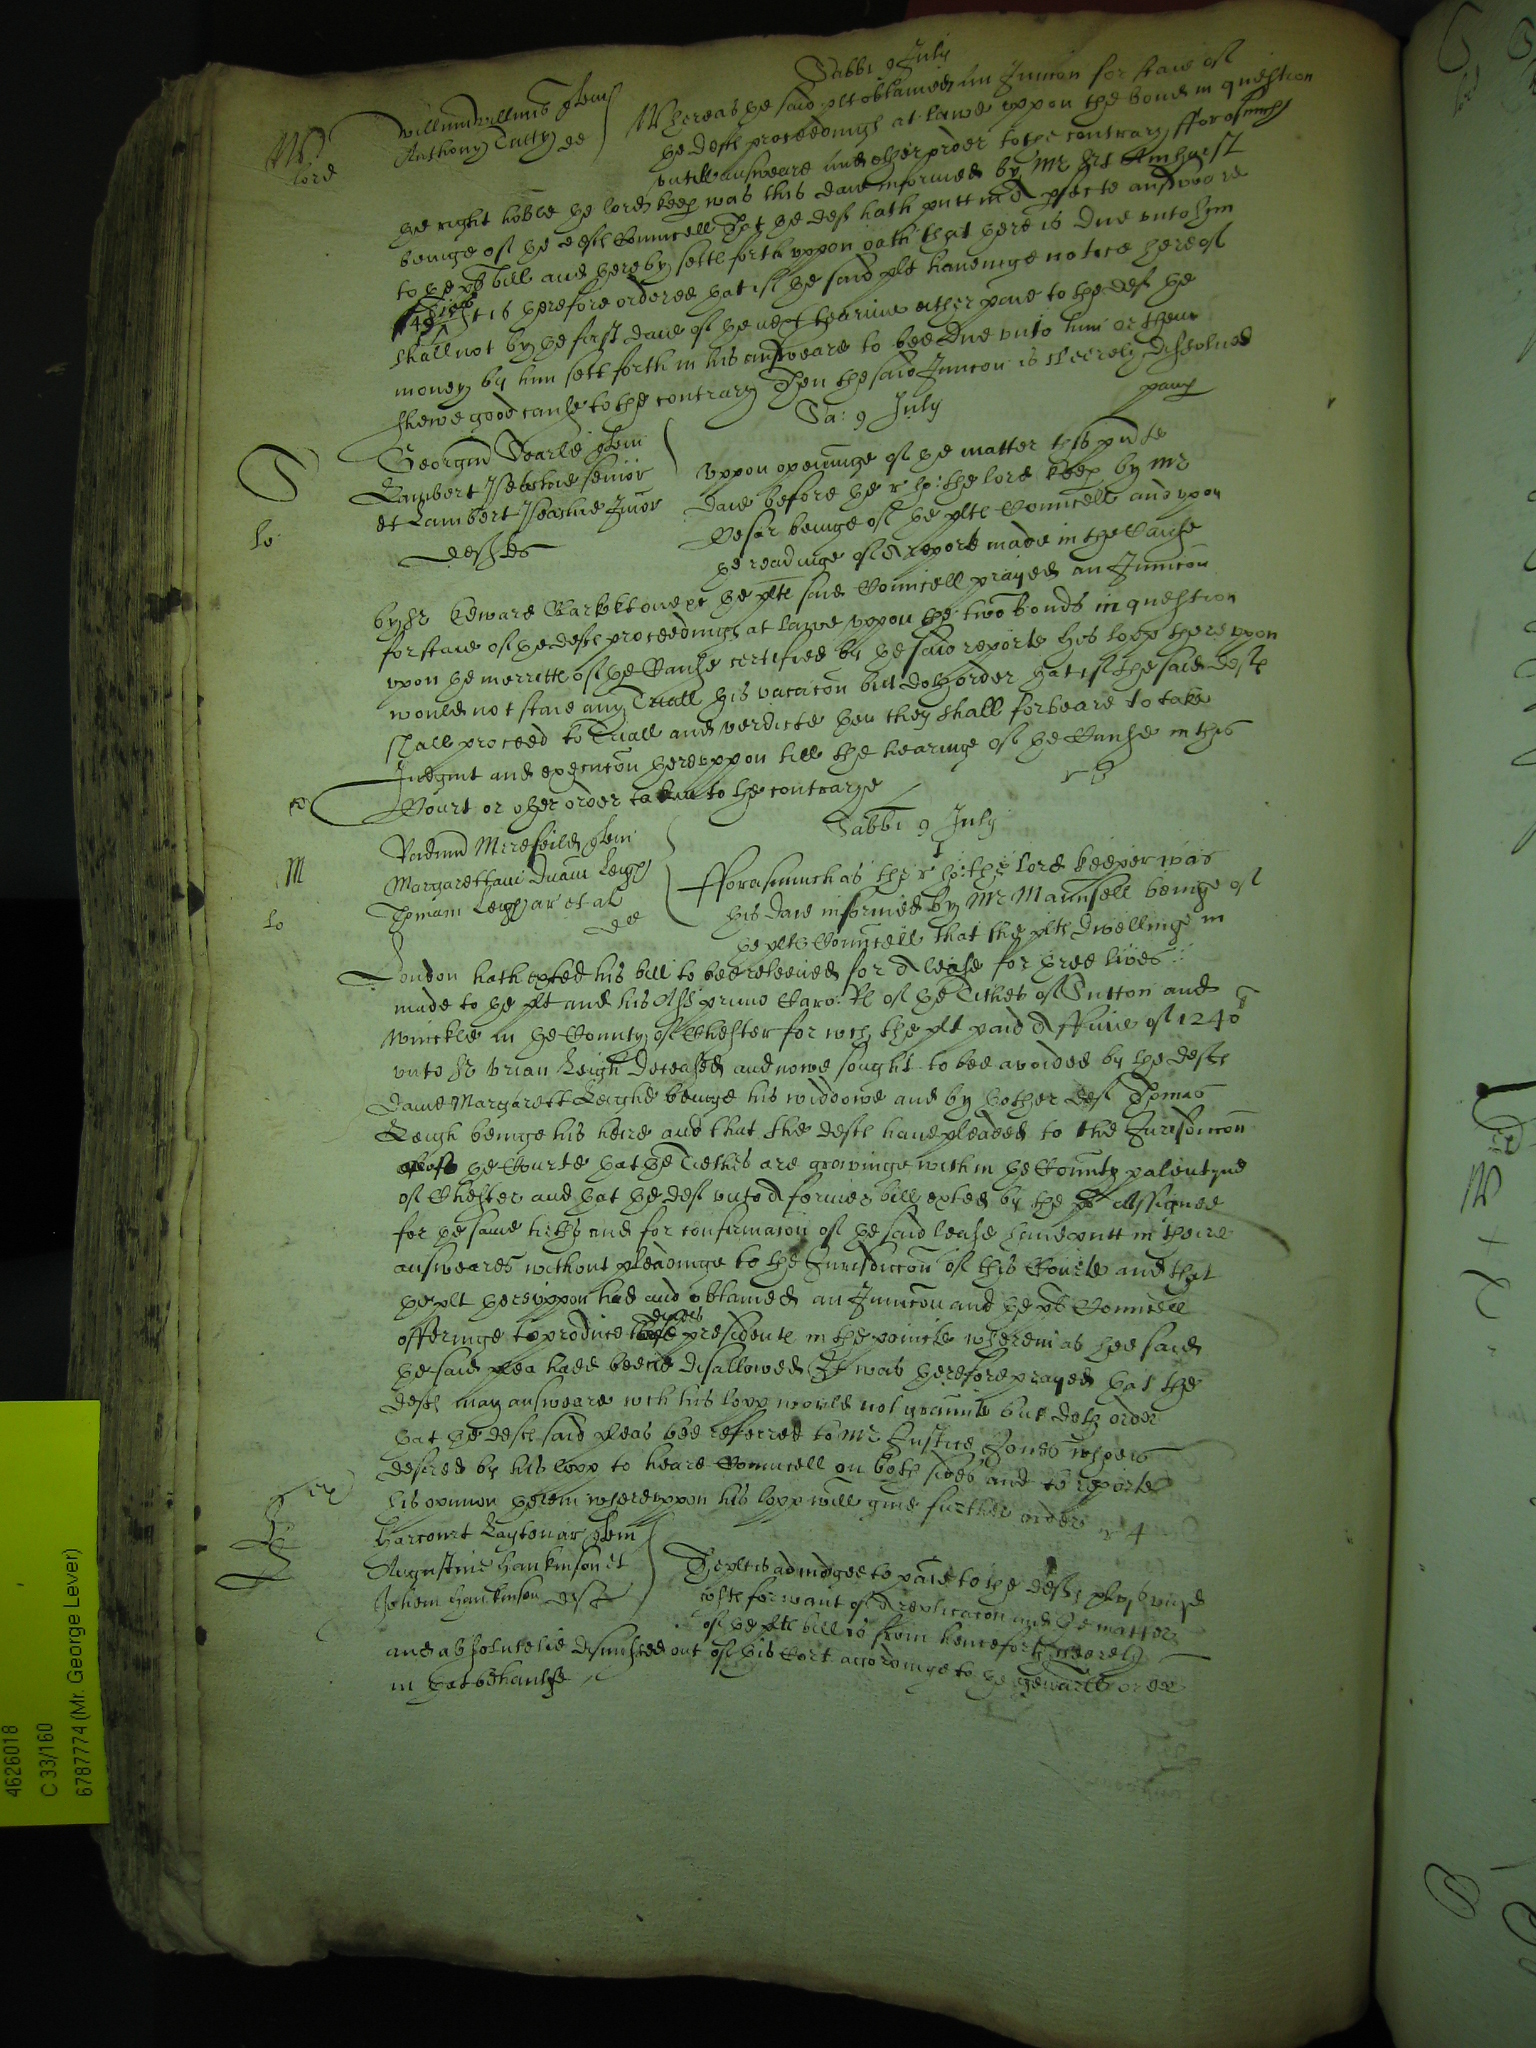 Sabbi 9 July
Willimus Willimus quer
Anthony Tutty def
Whereas the said plt obtained an Junccon for staie of
the defts proceedings at lawe uppon the bond in question
untill answeare and other order to the contrary fforasmuch
Mr
lord
the right hoble the lord keep was this daie informed by Mr Amhurst
beinge of the defts Councell That the deft hath putt in a pfecte answeare
to the plts bill and thereby setts forth uppon oath that there is due unto him
It is therefore ordered that if the said plt haveinge notice hereof
shall not by the first daie of the next tearme either paie to the deft the
money by him sett forth in his answeare to bee due unto him or then
shewe good cause to the contrary Then the said Junccon is cleerely dissolved
Sa: 9 July
Georgius Searle quer
Lambert senior
et Lambert Junior
defts
S
lo
Uppon openinge of the matter this pnte
daie before the r ho: the lord keep by Mr
beinge of the plts Councell and upon
the readinge of a reporte made in the Cause
by Sr Edward the plts said Councell prayed an Junccon
for staie of the defts proceedings at lawe uppon the two bonds in question
upon the merritts of the Cause certified by the said reporte his lopp thereuppon
would not staie any Triall this vacacon but doth order that if the said defts
shall proceed to Triall and verdicte then they shall forbeare to take
Judgmt and execucon thereuppon till the hearinge of the Cause in this
Court or other order taken to the contrarye
Sabbi 9 July
Merefeild quer
Margarettam Dnam Leigh
Thomam Leigh ar et al
def
M
lo
fforasmuch as the r ho: the lord keeper was
this daie informed by Mr Maunsell beinge of
the plts Councell that the plt dwellinge in
London hath exhted his bill to bee releeved for a lease for three lives
made to the plt and his Ass primo Caro: R of the Tithes of Sutton and
Winckle in the County of Chester for wch the plt paid a ffine of 1240
unto Sr Urian Leigh deceased and nowe sought to bee avoided by the defts
Dame Margarett Leighe beinge his widdowe and by thother deft Thomas
Leigh beinge his heire and that the defts have pleaded to the Jurisdiccon
of the Courte that the Tiethes are growinge within the County palentyne
of Chester and that the deft unto a former bill exhted by the plt Assignee
for the same tiths and for confirmacon of the said lease have putt in theire
answeares without pleadinge to the Jurisdiccon of this Courte and that
the plt thereuppon had and obtained an Junccon and the plts Councell
offeringe to produce divers presidents in the pointe wherein as hee said
the said plea hadd beene disallowed It was therefore prayed that the
defts may answeare wch his lopp would not graunte but doth order
that the defts said pleas bee referred to Mr Justice Jones who is
desired by his lopp to heare Councell on both sides and to reporte
his opinion therein whereuppon his lopp will give further order
Harcourt Layton ar quer
Augustine Hankinson et
Johem Hanckinson defts
The plt is adiudged to paie to the defts
costs for want of a replicacon and the matter
of the plts bill is from henceforth cleerely
and absolutelie dismissed out of this Cort accordinge to the generall order
in that behaulfe
4626018
C 33/160
6787774 (Mr. George Lever)